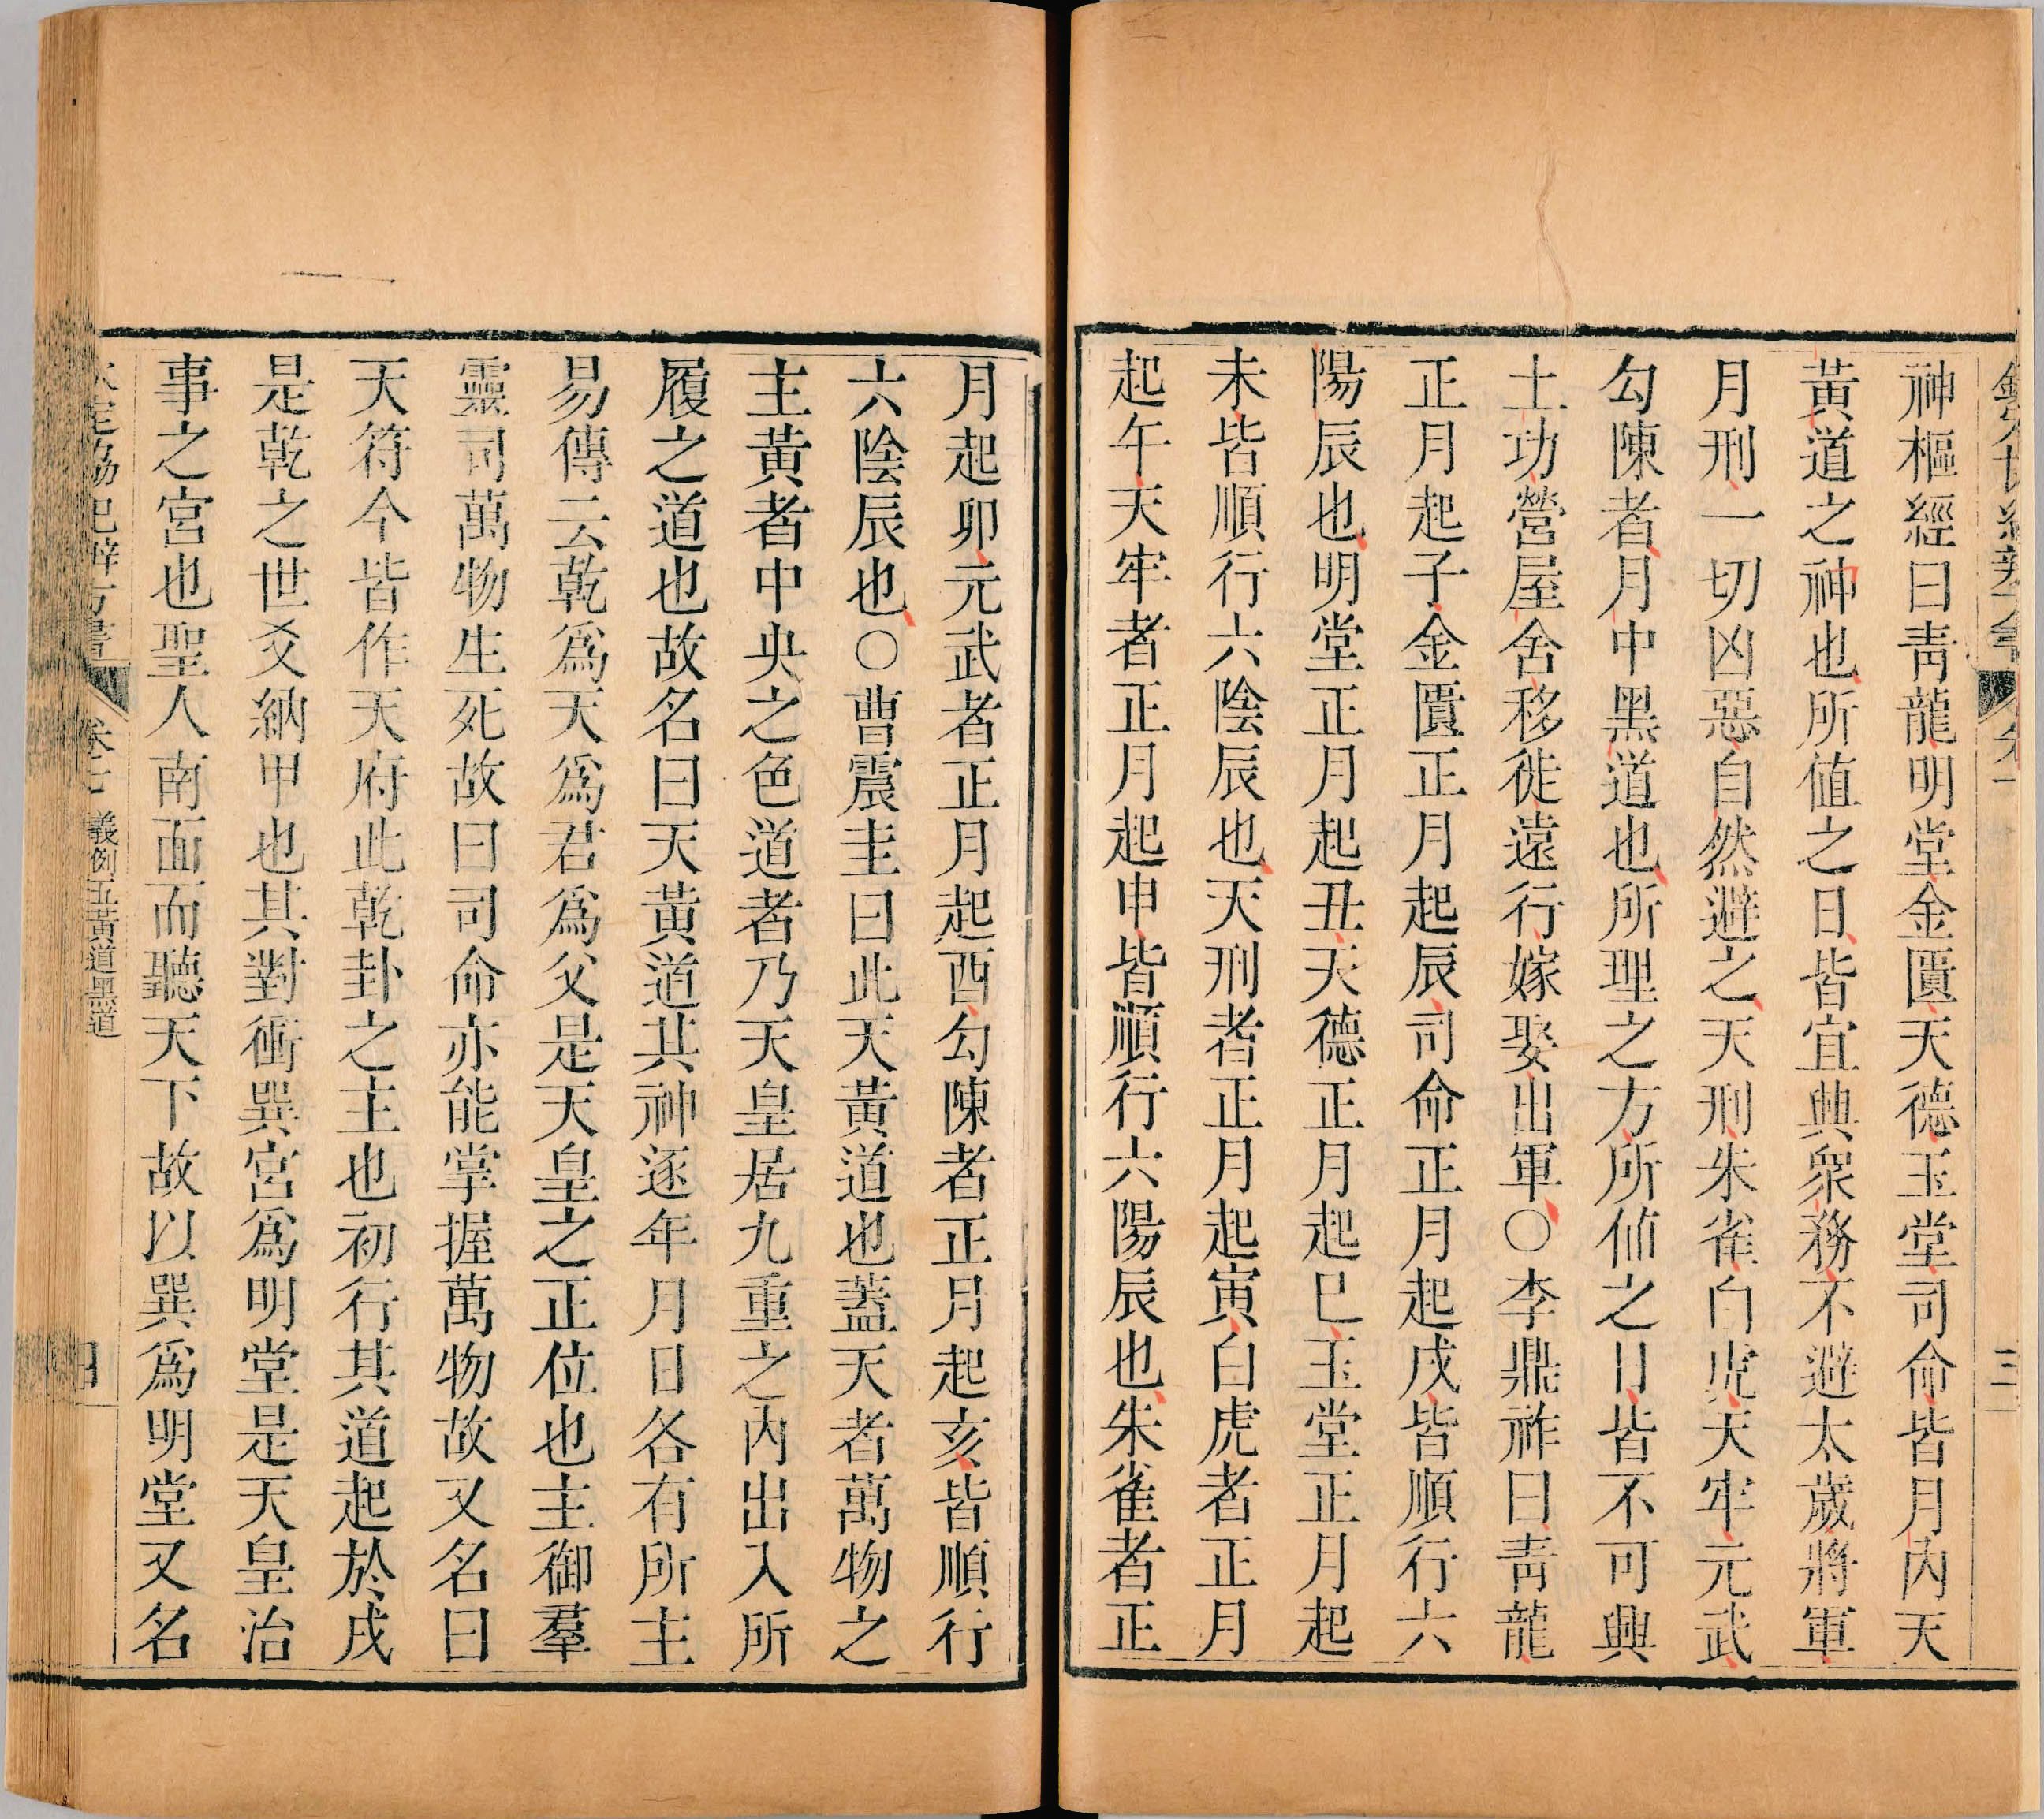 神樞經曰青龍明堂金匱天德玉堂司命皆月內天
黃道之神也所値之日皆宜興衆務不避太歲將軍
月刑一切凶惡自然避之天刑朱雀白虎天牢元武
勾陳者月中黑道也所理之方所値之日皆不可興
土功營屋舍移徙遠行嫁娶出軍○李鼎祚曰靑龍
正月起子金匱正月起辰司命正月起戌皆順行六
陽辰也明堂正月起丑天德正月起巳玉堂正月起
未皆順行六陰辰也天刑者正月起寅白虎者正月
起午天牢者正月起申皆順行六陽辰也朱雀者正
月起卯元武者正月起酉勾陳者正月起亥皆順行
六陰辰也○曹震圭曰此天黃道也蓋天者萬物之
主黃者中央之色道者乃天皇居九重之內出入所
履之道也故名曰天黃道其神逐年月日各有所主
易傳云乾爲天爲君爲父是天皇之正位也主御羣
靈司萬物生死故曰司命亦能掌握萬物故又名曰
天符今皆作天府此乾卦之主也初行其道起於戌
是乾之世爻納甲也其對衝巽宮爲明堂是天皇治
事之宮也聖人南面而聽天下故以巽爲明堂又名
卷七 義例五黃道黑道